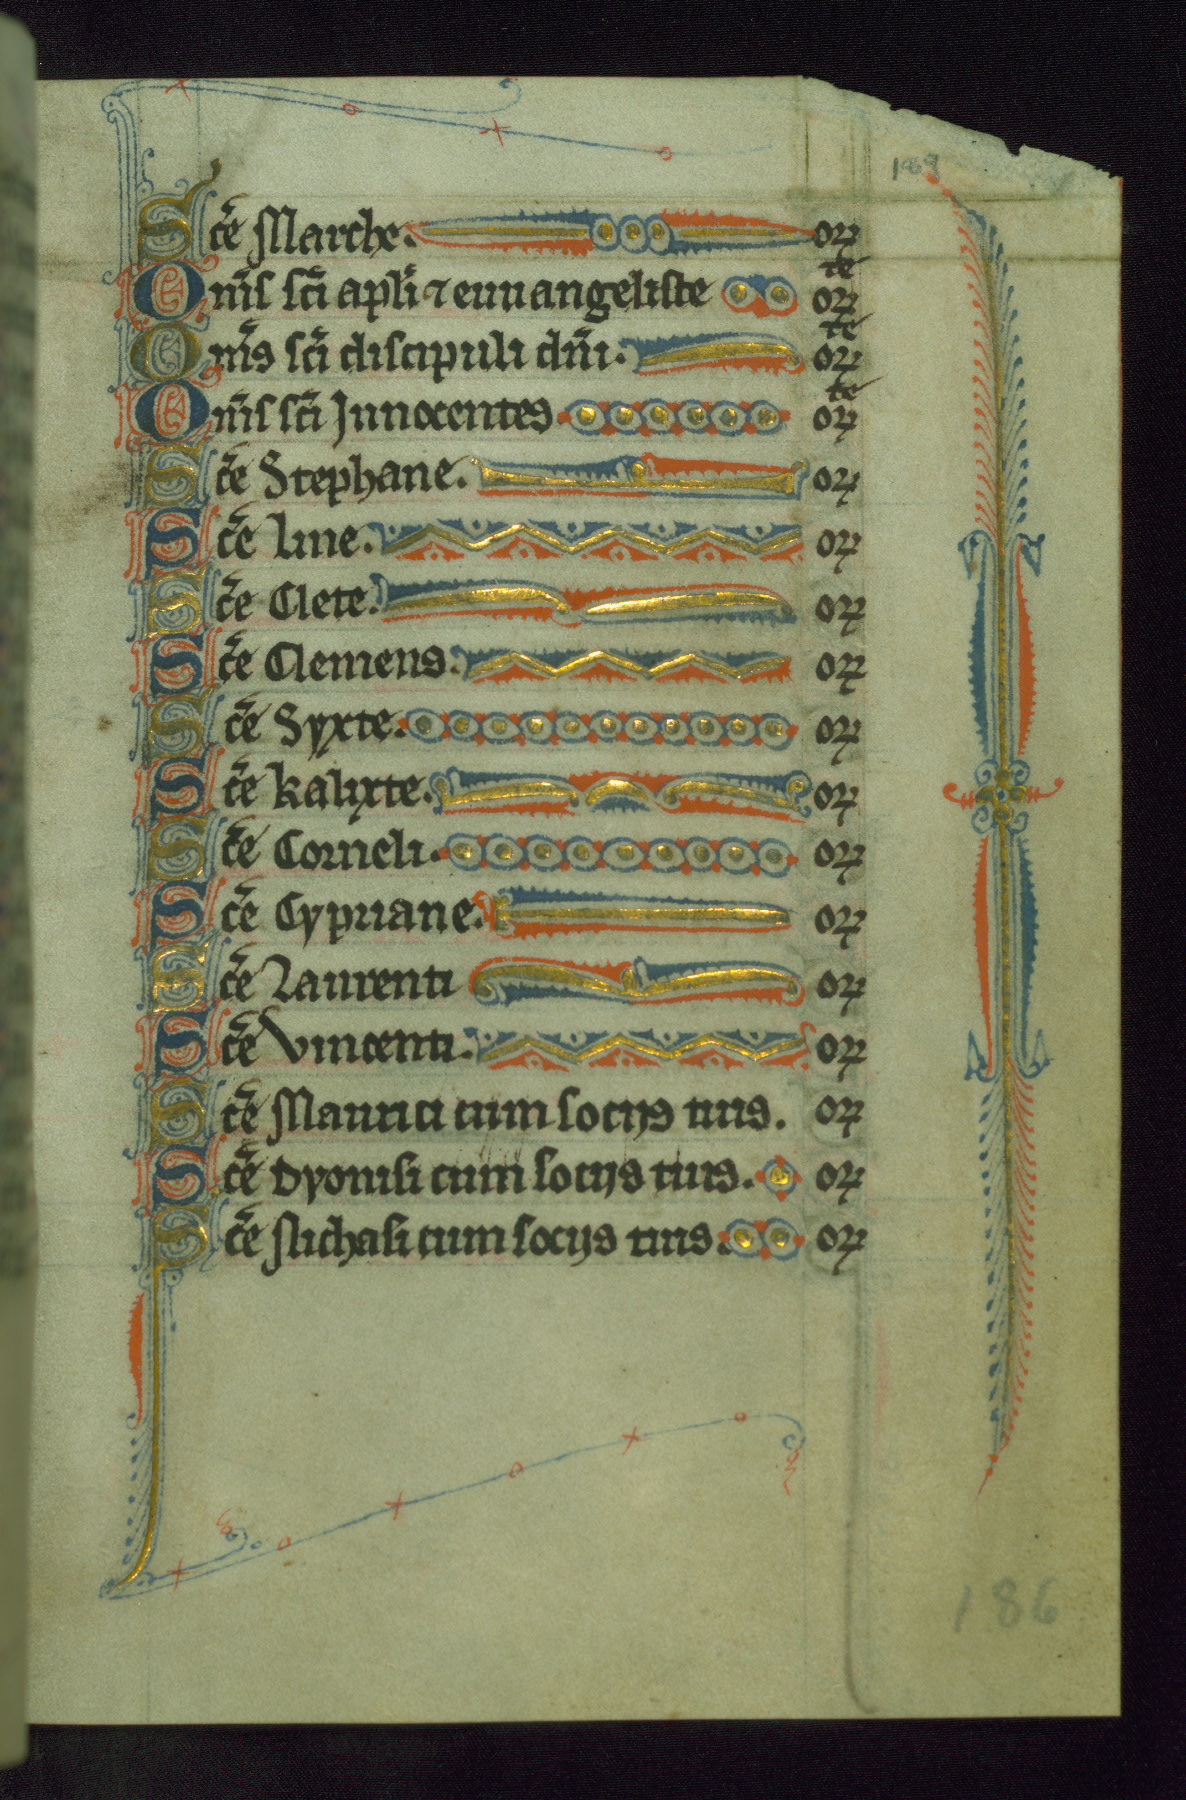 189
Sc̄e Marche. oꝝ
Om̄s sc̄i apl̄i ⁊ euuangeliste oꝝ te
Om̄s sc̄i discipuli dn̄i. oꝝ te
Om̄s sc̄i Innocentes oꝝ te
Sc̄e Stephane. oꝝ
Sc̄e Line. oꝝ
Sc̄e Clete. oꝝ
Sc̄e Clemens. oꝝ
Sc̄e Syxte. oꝝ
Sc̄e kalixte. oꝝ
Sc̄e Corneli. oꝝ
Sc̄e Cypriane. oꝝ
Sc̄e Laurenti oꝝ
Sc̄e Vincenti. oꝝ
Sc̄e Maurici cum socijs tuis. oꝝ
Sc̄e Dyonisi cum socijs tuis. oꝝ
Sc̄e Nichasi cum socijs tuis. oꝝ
186